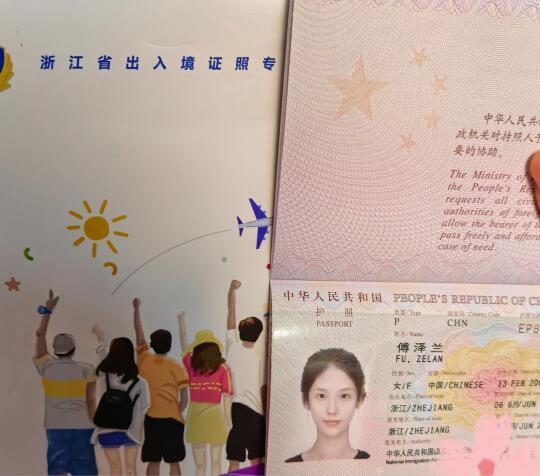 浙江省出入境证照专
中华人民共
政机关对持照人予
要的协助。
The Ministry of
the People's Re
requests all civi
authorities of forei
allow the bearer of t
pass freely and afford
case of need.
中华人民共和国 PEOPLE'S REPUBLIC OF CH
护 照
PASSPORT
类型/Type 国家码/Country Code
P CHN EP8
姓名/Name
傅泽兰
FU, ZELAN
性别/Sex 国籍/Nationality
女/F 中国/CHINESE 13 FEB 200
出生地点/Place of birth
浙江/ZHEJIANG 06 6月/JUN
签发地点/Place of issue
浙江/ZHEJIANG /JUN 2
签发机关/Authority
中华人民共和国
National Immigration